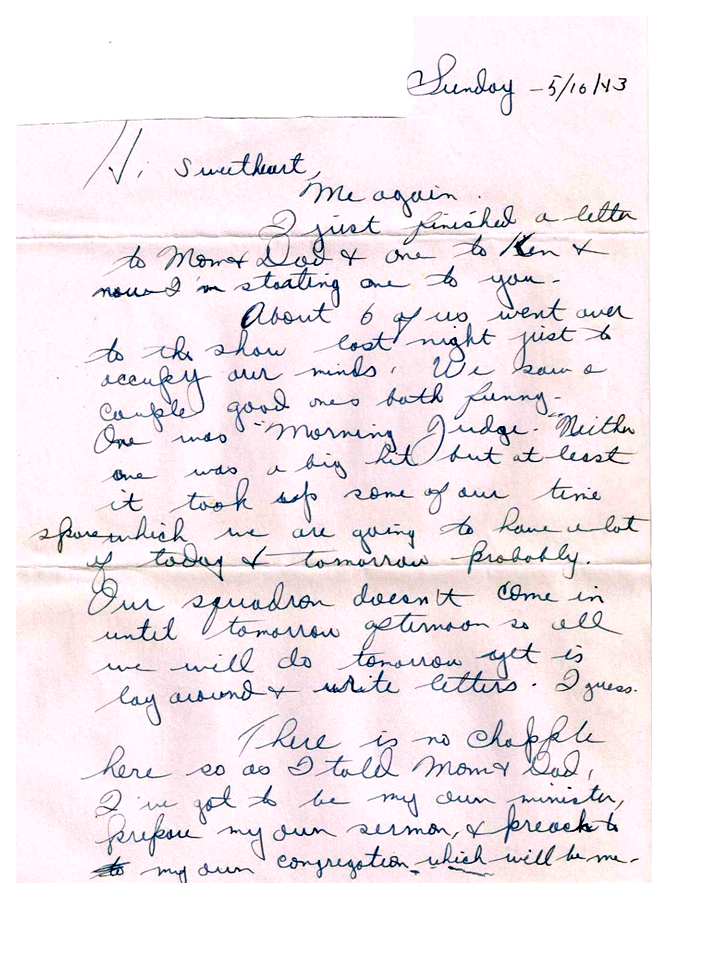 Sunday - 5/16/43
Hi Sweetheart,
Me again.
I just finished a letter
to Mom & Dad & one to Ken &
now I'm starting one to you -
About 6 of us went over
to the show last night just to
occupy our minds. We saw a
couple good ones both funny -
One was "Morning Judge." Neither
one was a big hit but at least
it took up some of our time
spare which we are going to have a lot
of today & tomorrow probably.
Our squadron doesn't come in
until tomorrow afternoon so all
we will do tomorrow yet is
lay around & write letters. I guess.
There is no chapple
here so as I told Mom & Dad,
I've got to be my own minister,
prepare my own sermon, & preach to
my own congregation which will be me -